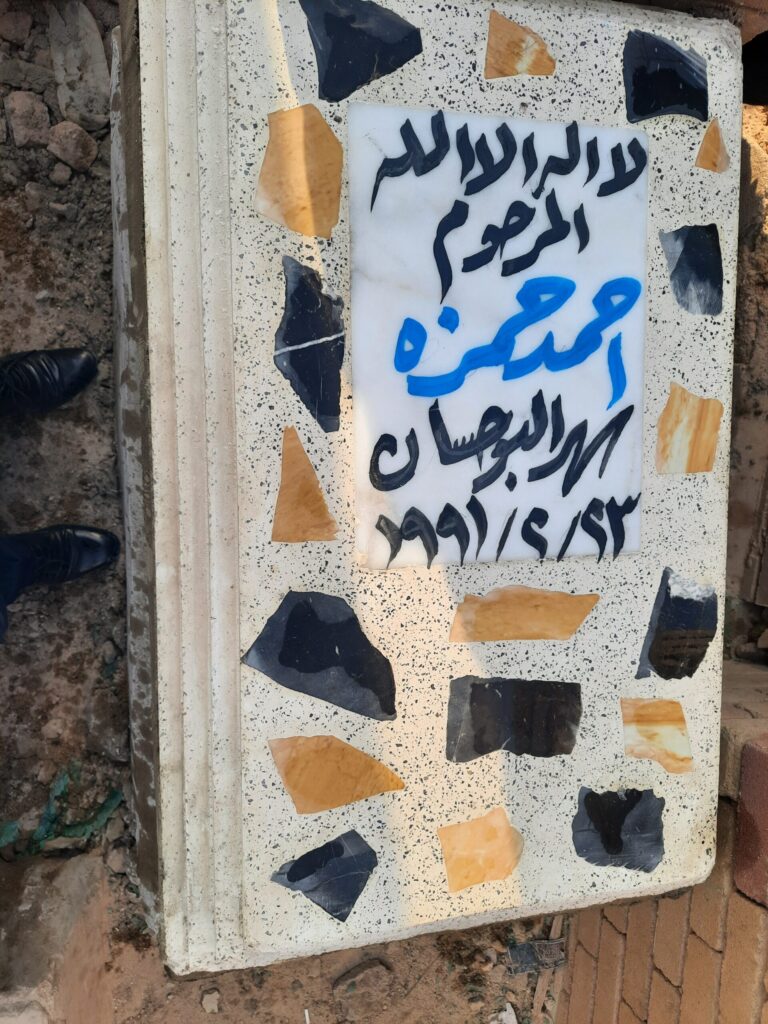 لا اله الا الله
المرحوم
احمد حمزه
البوحسان
١٩٩١/٢/٢٣